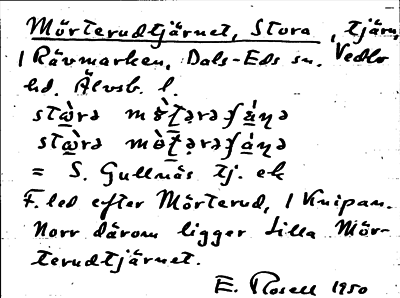 Mörterudtjärnet, Stora, tjärn,
i Rävmarken, Dals-Eds sn. Vedbo
hd. Älvsb. l.
= S. Gullnäs tj. ek
F. led efter Mörterud, i Knipan.
Norr därom ligger Lilla Mör-
terudtjärnet.
E. Rosell 1950